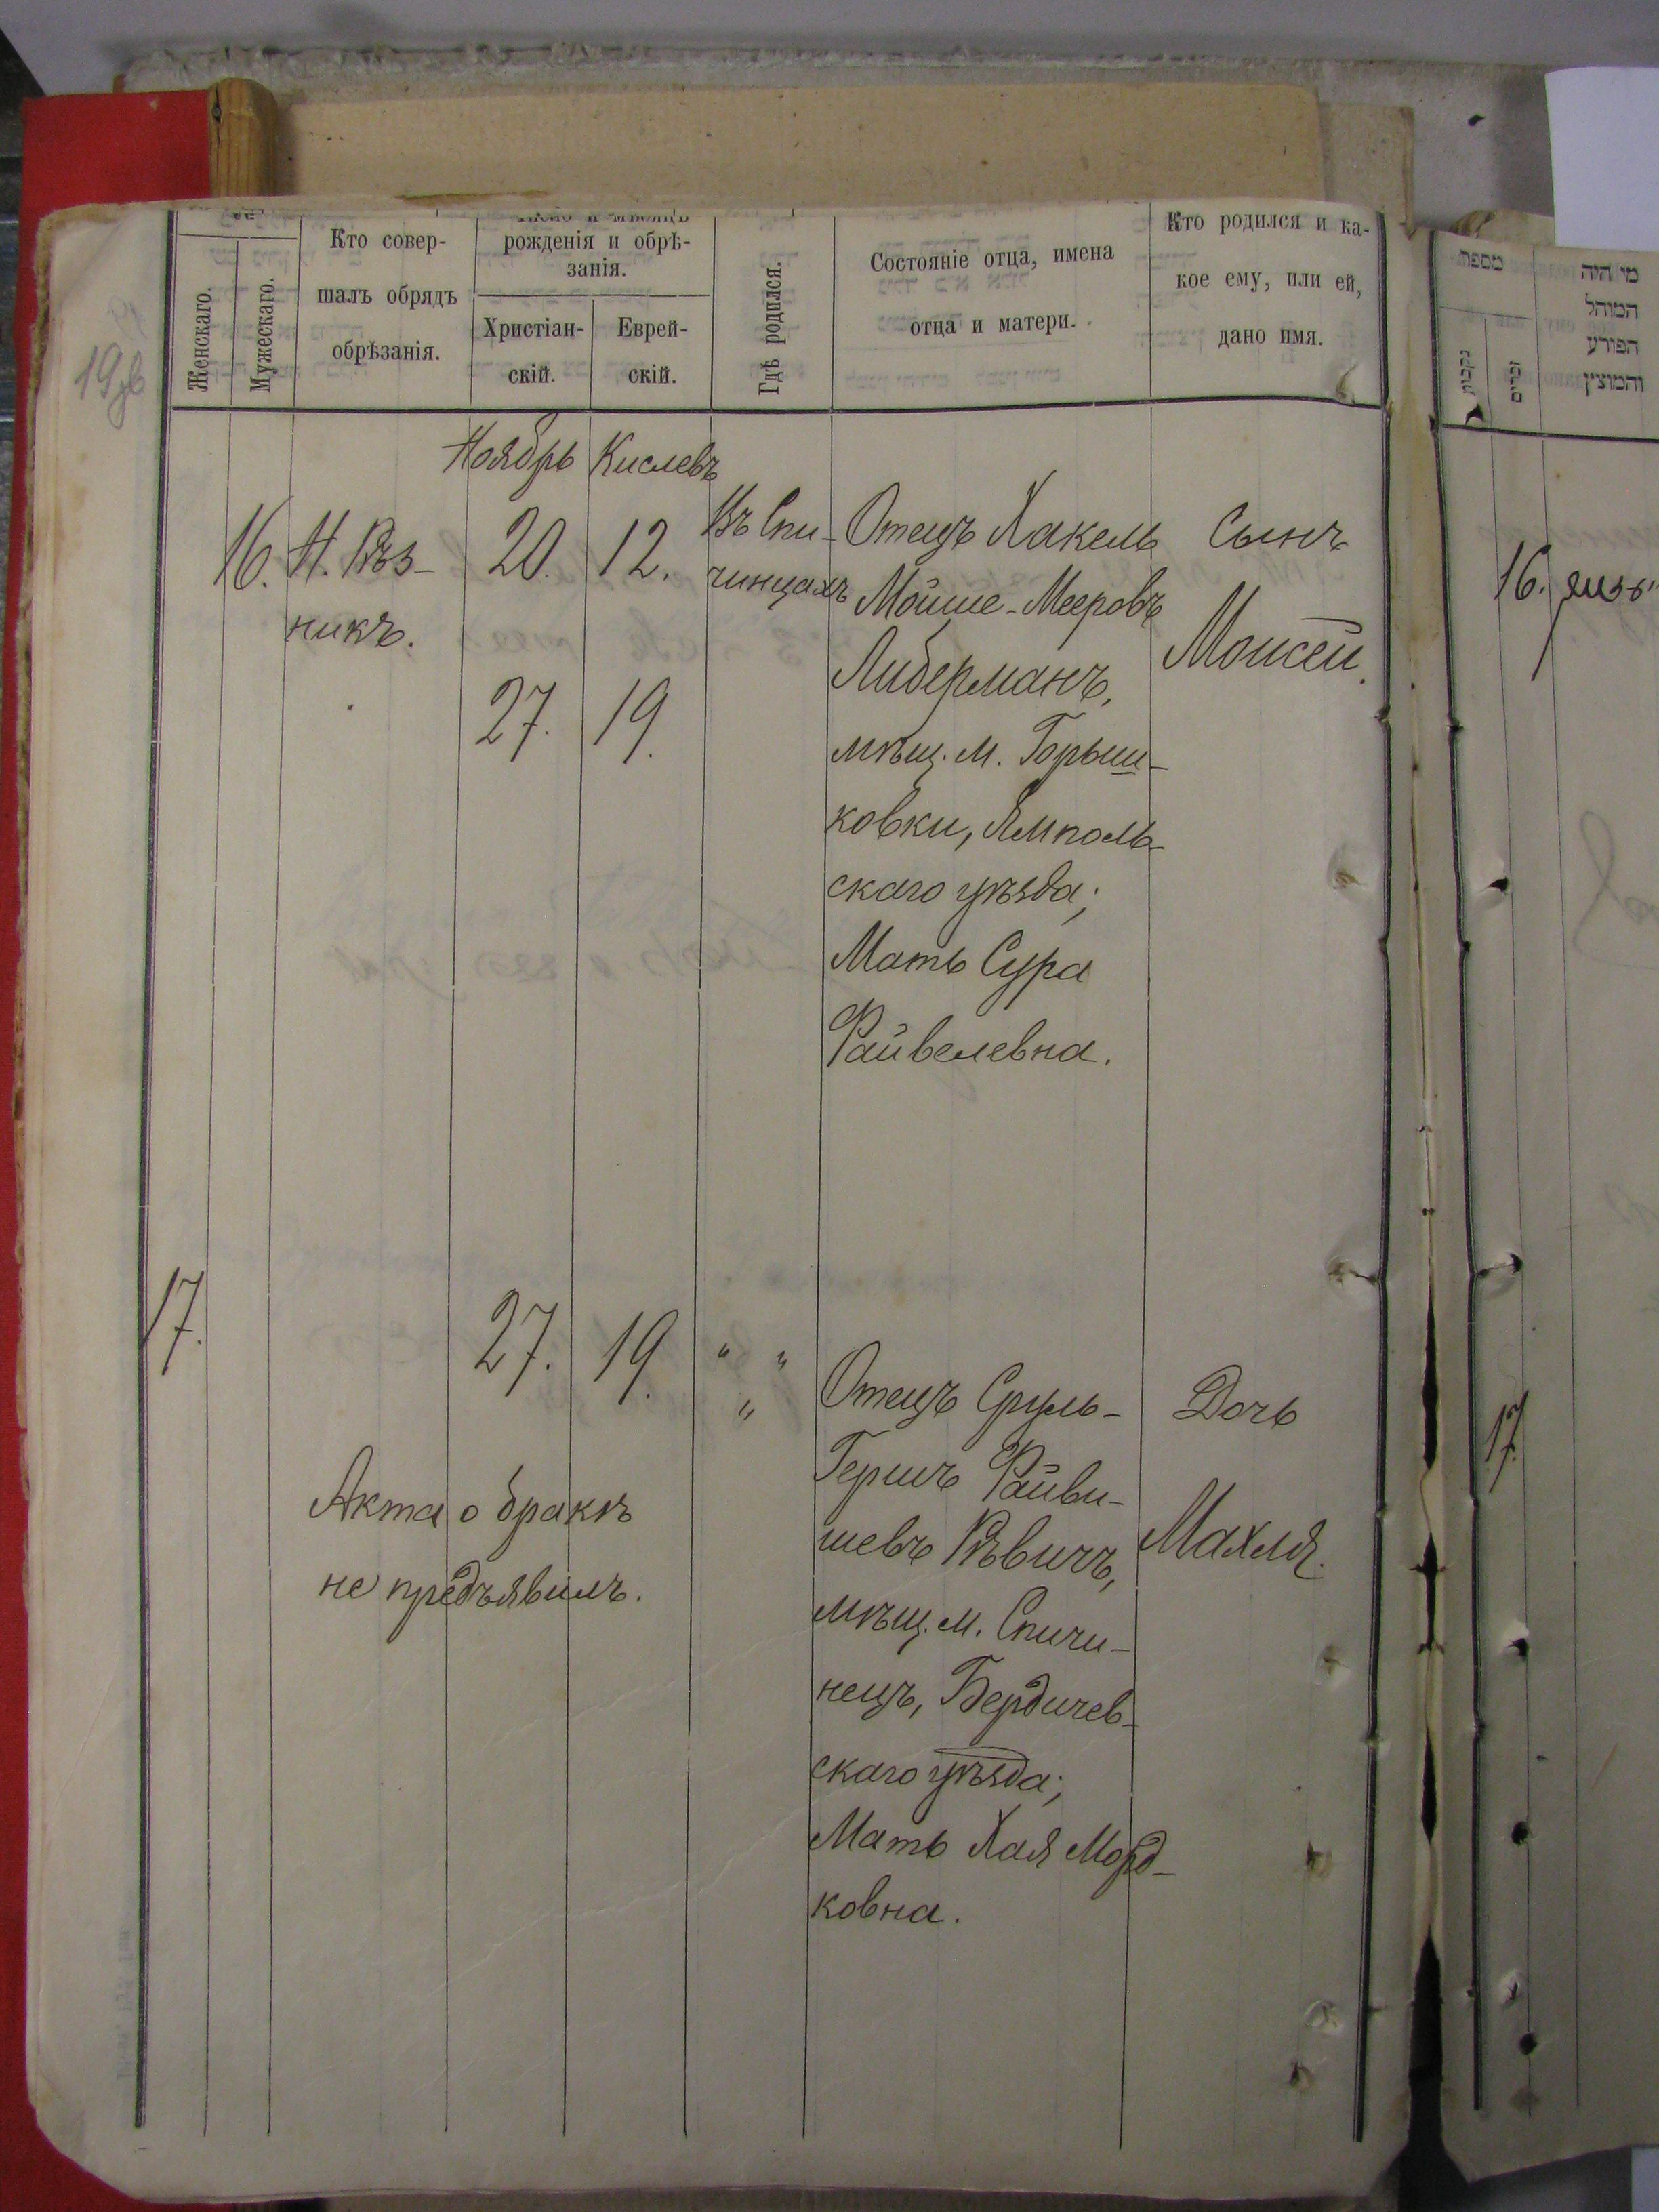 рожденія и обрѣ-
занія.
Женскаго.
Мужескаго.
Кто совер-
шалъ обрядъ
обрѣзанія.
Христіан-
скій.
Еврей-
скій.
Гдѣ родился.
Состояніе отца, имена
отца и матери.
Кто родился и ка-
кое ему, или ей,
дано имя.
Ноябрь Кислевъ
16.
Н. Рѣз-
никъ.
20. 12.
27. 19.
Въ Спи-
чинцахъ
Отецъ Хакель
Мойше-Мееровъ
Либерманъ,
мѣщ. м. Горыш-
ковки, Ямполь-
скаго уѣзда;
Мать Сура
Файвелевна.
Сынъ
Моисей.
17.
27. 19.
" "
"
Акта о бракѣ
не предъявилъ.
Отецъ Сруль-
Гершъ Файви-
шевъ Рѣвичъ,
мѣщ. м. Спичи-
нецъ, Бердичев-
скаго уѣзда;
Мать Хая Морд-
ковна.
Дочь
Махля.
מספר
נקבות
זכרים
מי היה
המוהל
הפורע
והמוצץ
16.
17.